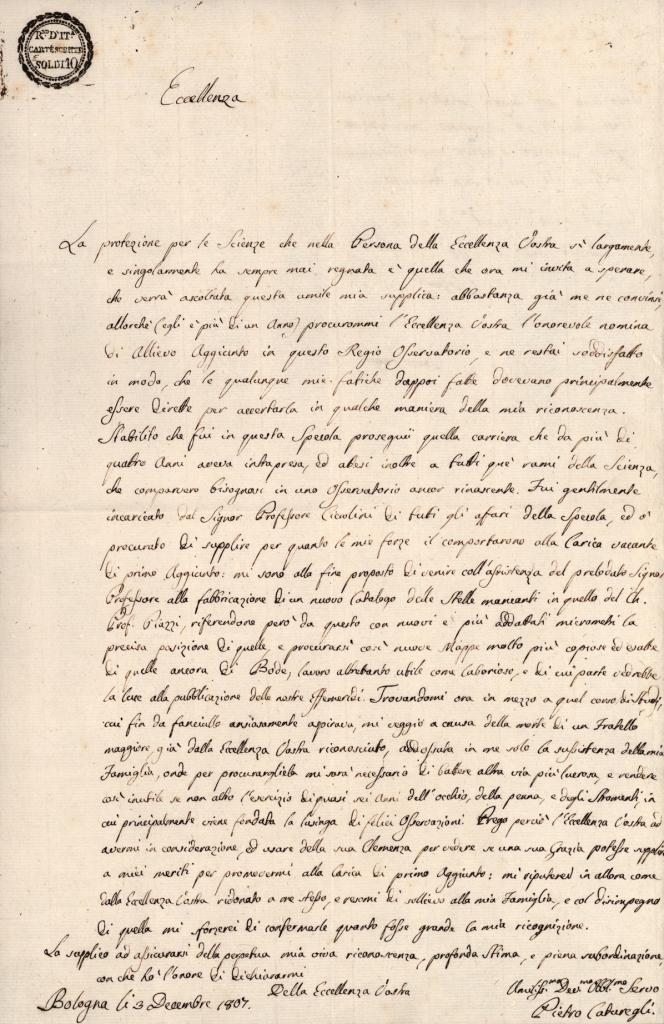 R.no D'IT.a
CARTE SCRITTE
SOLDI 10
Eccellenza
La protezione per le Scienze che nella Persona della Eccellenza Vostra sì largamente,
e singolarmente ha sempre mai regnata è quella che ora mi invita a sperare,
che verrà ascoltata questa umile mia supplica: abbastanza già me ne convinsi,
allorchè (egli è più di un Anno) procurommi l'Eccellenza Vostra l'onorevole nomina
di Allievo Aggiunto in questo Regio Osservatorio, e ne restai soddisfatto
in modo, che le qualunque mie fatiche dappoi fatte dovevano principalmente
essere dirette per accertarla in qualche maniera della mia riconoscenza.
Stabilito che fui in questa Specola proseguii quella carriera che da più di
quattro Anni aveva intrapresa, ed attesi inoltre a tutti que' rami della Scienza,
che comparvero bisognosi in uno Osservatorio ancor rinascente. Fui gentilmente
incaricato dal Signor Professore Ciccolini di tutti gli affari della Specola, ed ò
procurato di supplire per quanto le mie forze il comportarono alla Carica vacante
di primo Aggiunto: mi sono alla fine proposto di venire coll'assistenza del prelodato Signor
Professore alla fabbricazione di un nuovo Catalogo delle Stelle mancanti in quello del Ch.
Prof. Piazzi, riferendone però da questo con nuovi e più addattati micrometri la
precisa posizione di quelle, e procurarsi così nuove Mappe molto più copiose ed esatte
di quelle ancora di Bode, lavoro altrettanto utile come laborioso, e di cui parte vedrebbe
la luce alla pubblicazione delle nostre Effemeridi. Trovandomi ora in mezzo a quel corso di Studj,
cui fin da fanciullo ansiosamente aspirava, mi veggio a causa della morte di un Fratello
maggiore già dalla Eccellenza Vostra riconosciuto, addossata in me solo la sussistenza della mia
Famiglia, onde per procurargliela mi sarà necessario di battere altra via più lucrosa, e rendere
così inutile se non altro l'esercizio di quasi sei Anni dell'occhio, della penna, e degli Stromenti, in
cui principalmente viene fondata la lusinga di felici Osservazioni. Prego perciò l'Eccellenza Vostra ad
avermi in considerazione, ed usare della sua Clemenza per vedere se una sua Grazia potesse supplire
a miei meriti per promovermi alla Carica di primo Aggiunto: mi riputerei in allora come
dalla Eccellenza Vostra ridonato a me stesso, e resomi di sollievo alla mia Famiglia, e col disimpegno
di quella mi sforzerei di confermarle quanto fosse grande la mia ricognizione.
La supplico ad assicurarsi della perpetua mia viva riconoscenza, profonda Stima, e piena subordinazione,
con che ho l'onore di dichiararmi
Della Eccellenza Vostra
Umiliss.mo Dev.mo Obbl.mo Servo
Bologna li 3 Decembre 1807.
Pietro Caturegli.